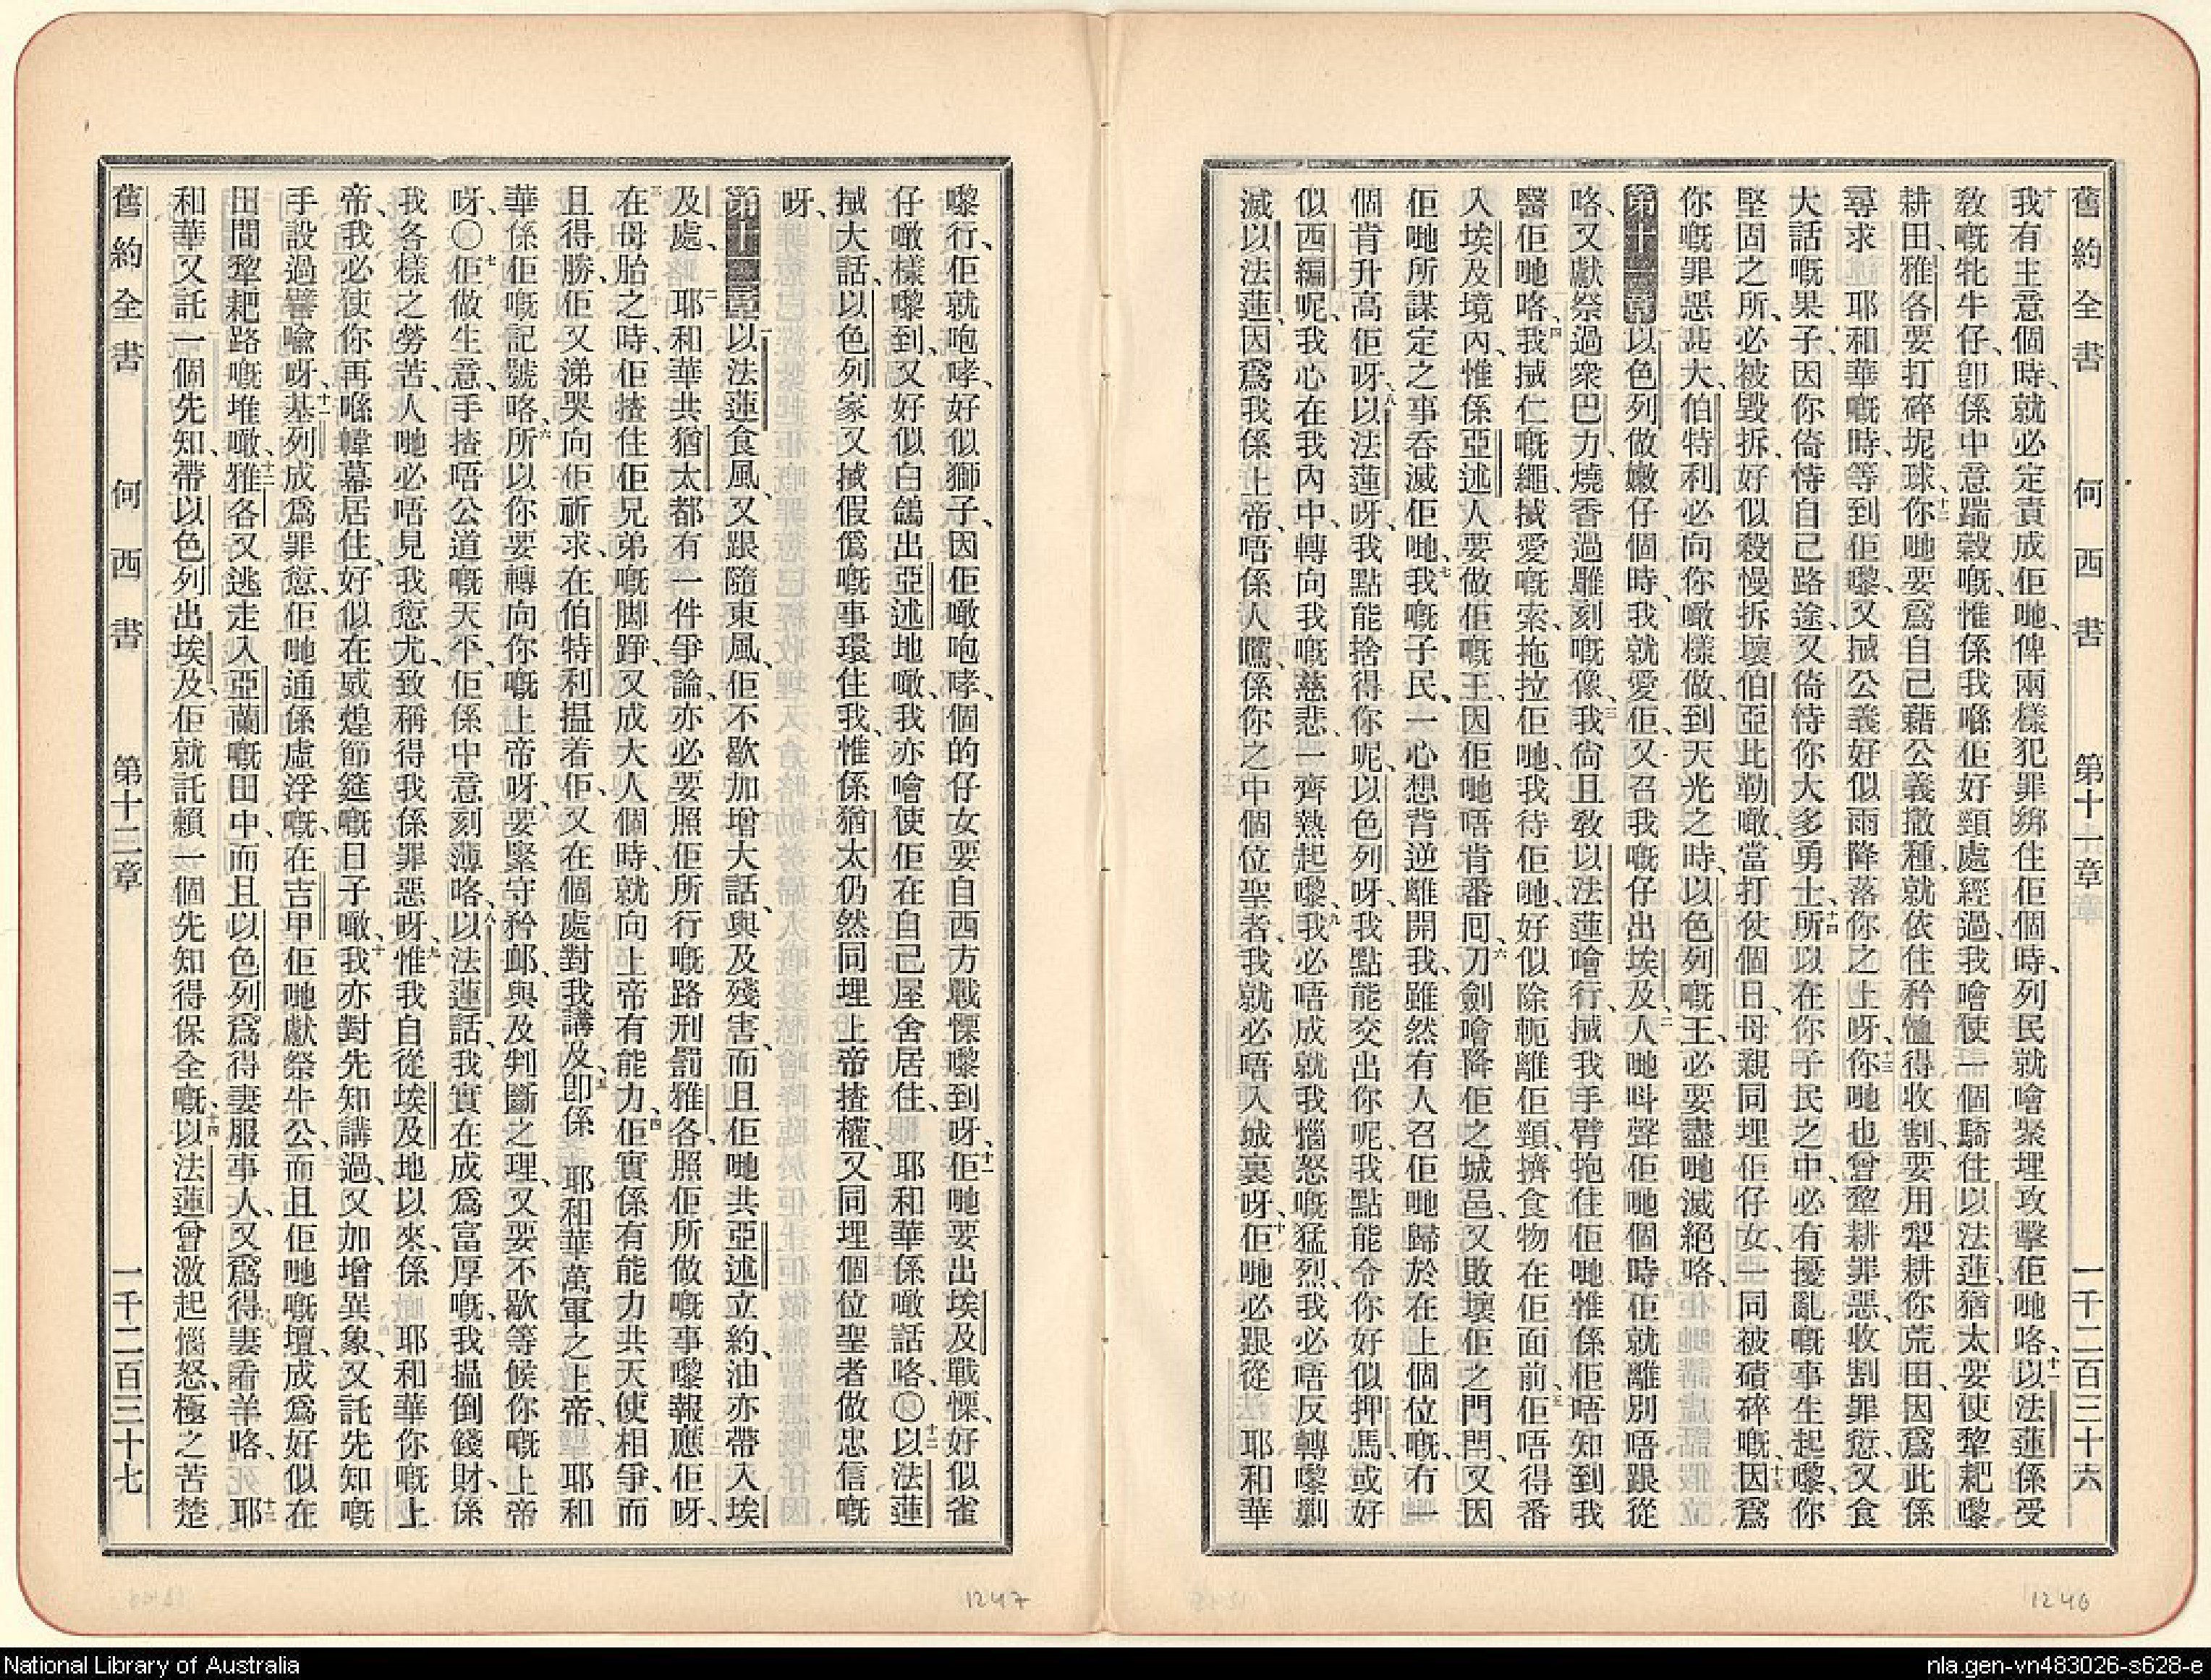 舊約全書　何西書　第十一章　一千二百三十六
十我有主意個時、就必定責成佢哋、俾兩樣犯罪綁住佢個時、列民就噲聚埋攻擊佢哋咯、十一以法蓮係受
教嘅牝牛仔、卽係中意踹穀嘅、惟係我喺佢好頸處經過、我噲使一個騎住以法蓮、猶太要使犂耙嚟
耕田、雅各要打碎坭球、十二你哋要爲自己藉公義撒種、就依住矜恤得收割、要用犂耕你荒田、因爲此係
尋求　耶和華嘅時、等到佢嚟、又搣公義好似雨降落你之上呀、十三你哋也曾犂耕罪惡、收割罪愆、又食
大話嘅果子、因你倚恃自己路途、又倚恃你大多勇士、十四所以在你子民之中、必有擾亂嘅事生起嚟、你
堅固之所、必被毀拆、好似殺慢拆壞伯亞比勒噉、當打仗個日、母親同埋佢仔女、一同被碴碎嘅、十五因爲
你嘅罪惡甚大、伯特利必向你噉樣做、到天光之時、以色列嘅王、必要盡哋滅絕咯、
第十一章一以色列做嫩仔個時、我就愛佢、又召我嘅仔出埃及、二人哋呌聲佢哋個時、佢就離別唔跟從
咯、又獻祭過衆巴力、燒香過雕刻嘅像、三我尙且教以法蓮噲行、搣我手臂抱住佢哋、惟係佢唔知到我
醫佢哋咯、四我搣仁嘅繩、搣愛嘅索、拖拉佢哋、我待佢哋、好似除軛離佢頸、擠食物在佢面前、五佢唔得番
入埃及境內、惟係亞述人要做佢嘅王、因佢哋唔肯番囘、六刀劍噲降佢之城邑、又敗壞佢之門閂、又因
佢哋所謀定之事吞滅佢哋、七我嘅子民、一心想背逆離開我、雖然有人召佢哋歸於在上個位嘅、冇一
個肯升高佢呀、八以法蓮呀、我點能捨得你呢、以色列呀、我點能交出你呢、我點能令你好似押馬、或好
似西編呢、我心在我內中、轉向我嘅慈悲、一齊熱起嚟、九我必唔成就我惱怒嘅猛烈、我必唔反轉嚟剿
滅以法蓮、因爲我係上帝、唔係人嘅、係你之中個位聖者、我就必唔入城裏呀、十佢哋必跟從　耶和華
嚟行、佢就咆哮、好似獅子、因佢噉咆哮、個的仔女要自西方戰慄嚟到呀、十一佢哋要出埃及戰慄、好似雀
仔噉樣嚟到、又好似白鴿出亞述地噉、我亦噲使佢在自己屋舍居住、　耶和華係噉話咯、〇十二以法蓮
搣大話、以色列家又搣假僞嘅事環住我、惟係猶太仍然同埋上帝揸權、又同埋個位聖者做忠信嘅
呀、
第十二章一以法蓮食風、又跟隨東風、佢不歇加增大話、與及殘害、而且佢哋共亞述立約、油亦帶入埃
及處、二　耶和華共猶太都有一件爭論、亦必要照佢所行嘅路刑罰雅各、照佢所做嘅事嚟報應佢呀、
三在母胎之時、佢揸住佢兄弟嘅脚踭、又成大人個時、就向上帝有能力、四佢實係有能力共天使相爭、而
且得勝、佢又涕哭向佢祈求、在伯特利揾着佢、又在個處對我講及、五卽係　耶和華萬軍之上帝、　耶和
華係佢嘅記號咯、六所以你要轉向你嘅上帝呀、要緊守矜邮、與及判斷之理、又要不歇等候你嘅上帝
呀、〇七佢做生意、手揸唔公道嘅天平、佢係中意刻薄咯、八以法蓮話、我實在成爲富厚嘅、我揾倒錢財、係
我各樣之勞苦、人哋必唔見我愆尤、致稱得我係罪惡呀、九惟我自從埃及地以來、係　耶和華你嘅上
帝、我必使你再喺幃幕居住、好似在威煌節筵嘅日子噉、十我亦對先知講過、又加增異象、又託先知嘅
手設過譬喻呀、十一基列成爲罪愆、佢哋通係虛浮嘅、在吉甲佢哋獻祭牛公、而且佢哋嘅壇、成爲好似在
田間犂耙路嘅堆噉、十二雅各又逃走入亞蘭嘅田中、而且以色列爲得妻服事人、又爲得妻看羊咯、十三　耶
和華又託一個先知、帶以色列出埃及、佢就託賴一個先知得保全嘅、十四以法蓮曾激起惱怒、極之苦楚
舊約全書　何西書　第十二章　一千二百三十七
1247
1246
National Library of Australia
nla.gen-vn483026-s628-e